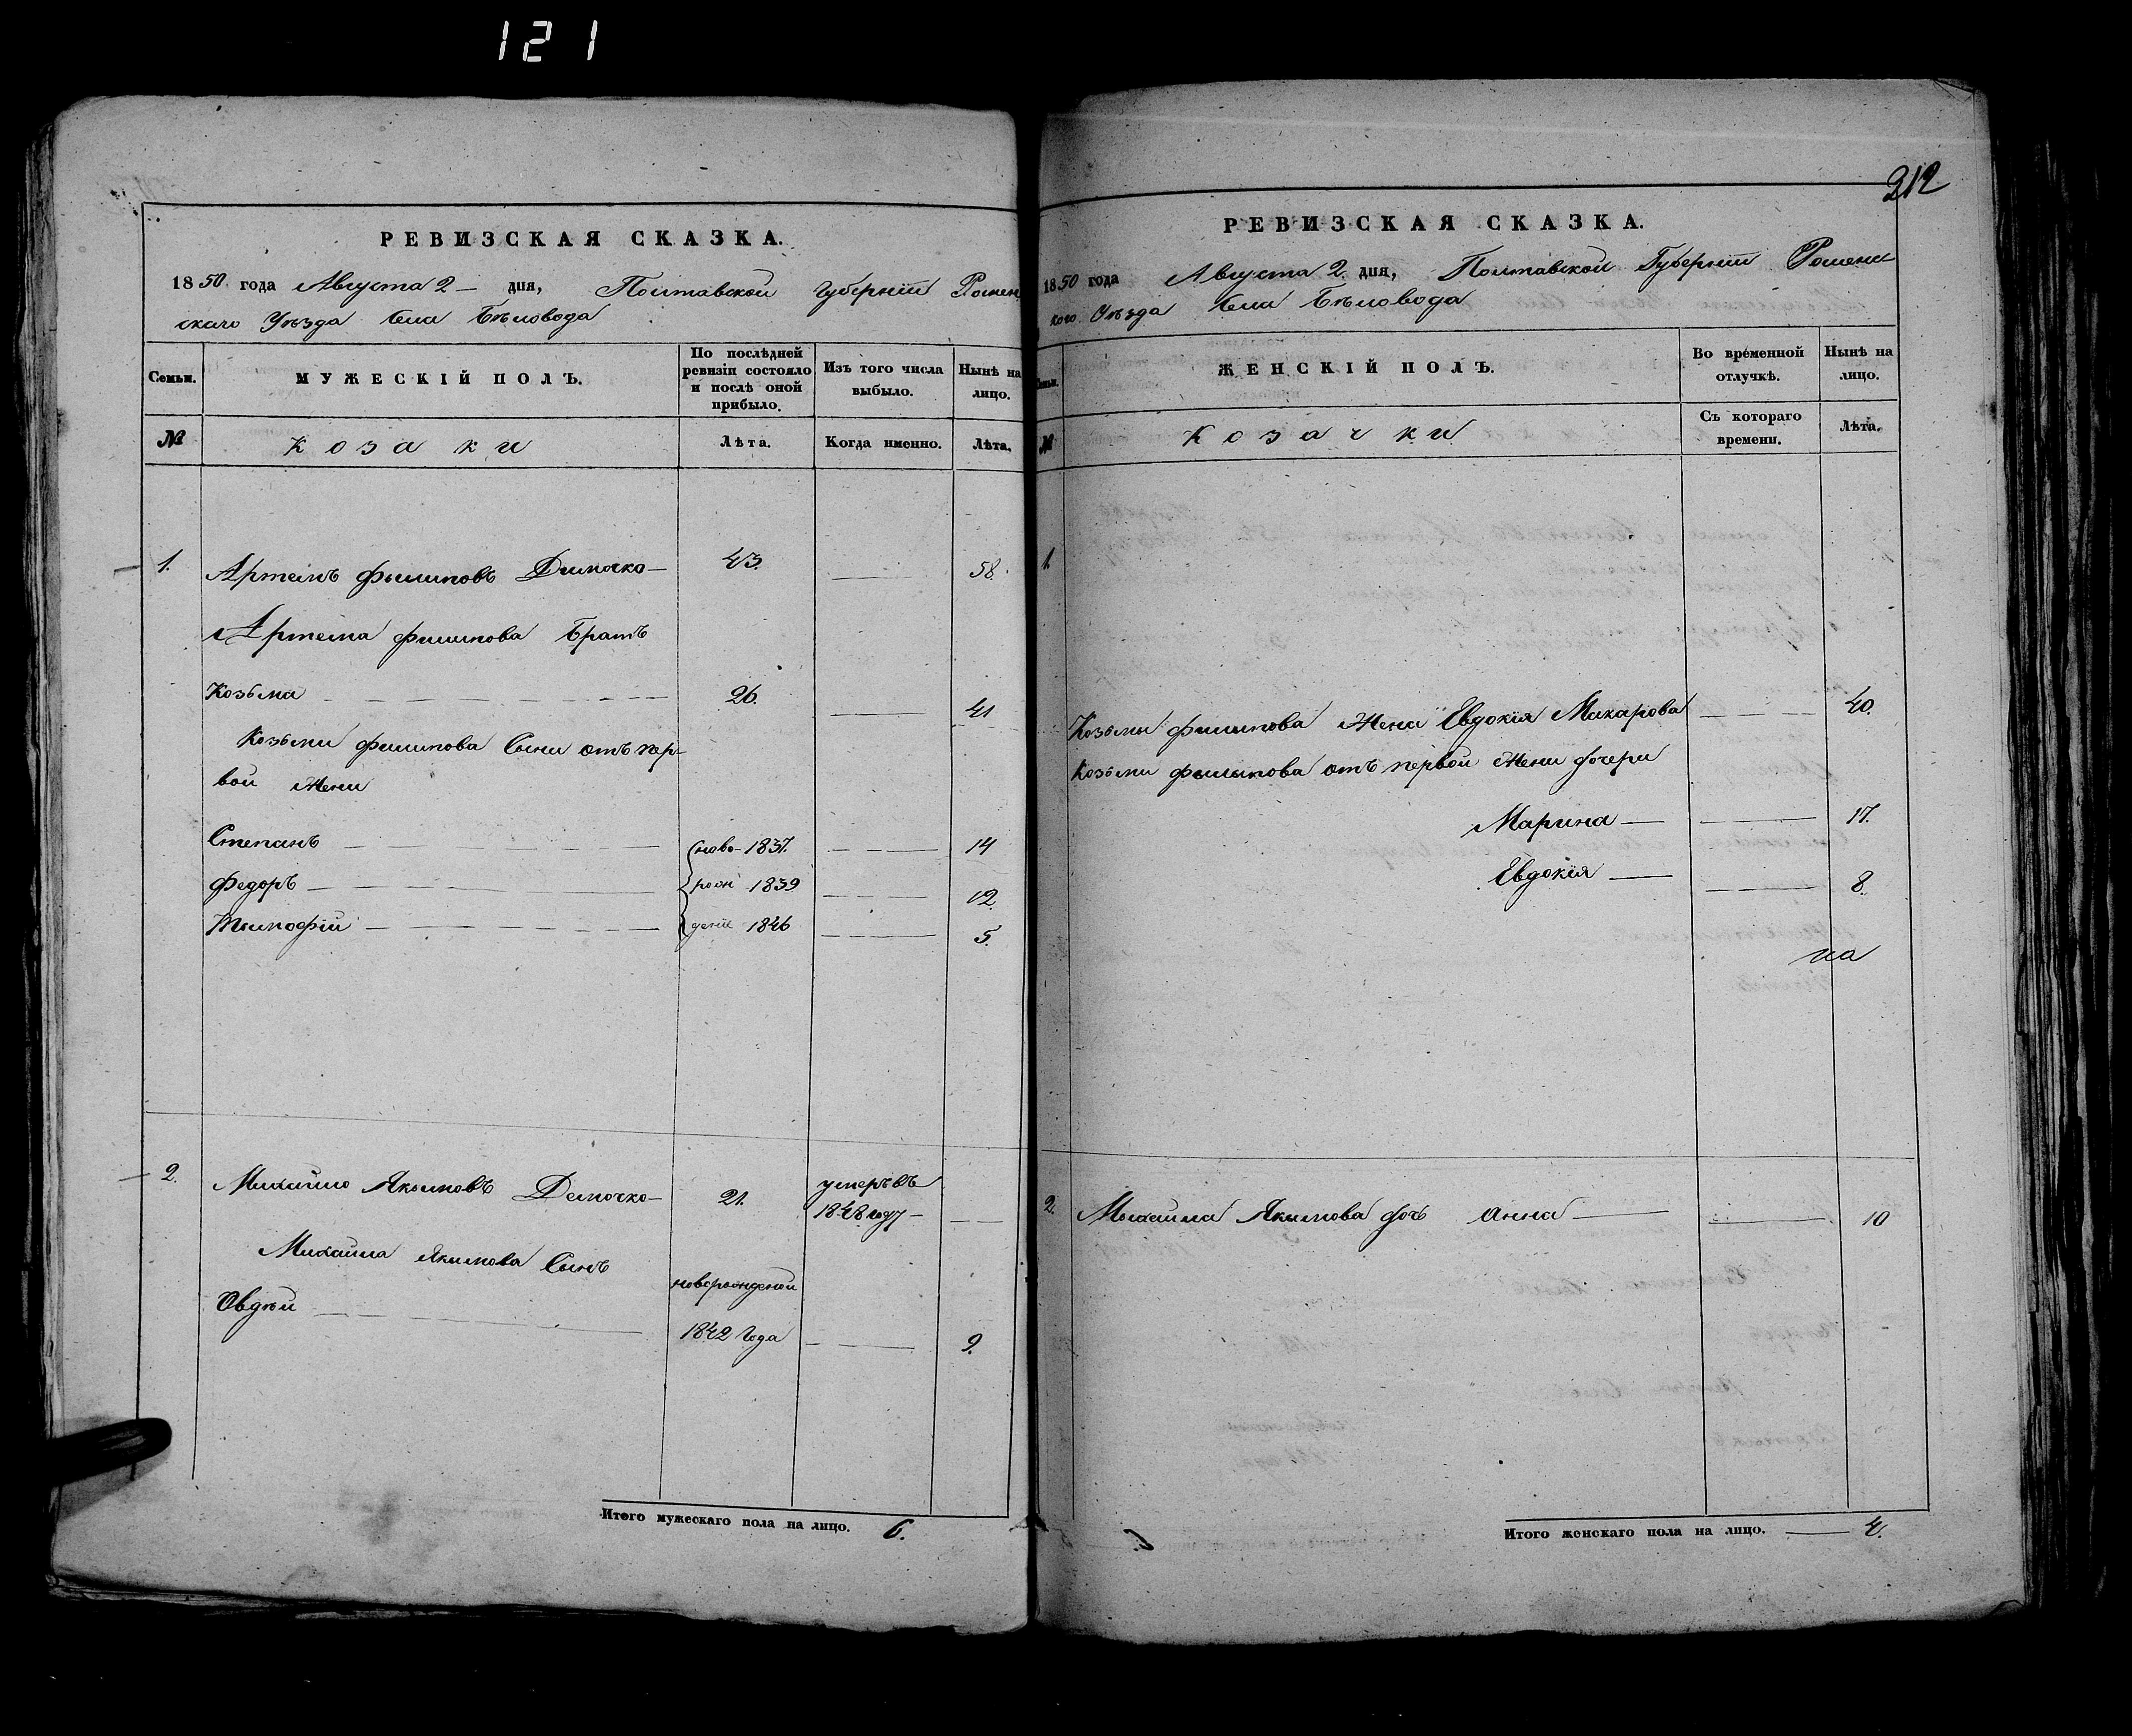 121
РЕВИЗСКАЯ СКАЗКА.
1850 года Августа 2 — дня, Полтавской губернiи Ромен
скаго Уѣзда Села Бѣловода
Семьи.
МУЖЕСКІЙ ПОЛЪ.
По послѣдней
ревизіи состояло
и послѣ оной
прибыло.
Изъ того числа
выбыло.
Нынѣ на
лицо.
№
Козаки
Лѣта.
Когда именно.
Лѣта.
1. Артемъ Филиповъ Димочко — 43. — 58.
Артема Филипова Братъ
Козьма — 26. — 41
Козьми Филипова Сыни отъ пер-
вой Жени
Степанъ — ново- 1837. — 14
Федоръ — рож 1839 — 12.
Тимофiй — денiе 1846 — 5.
2. Михайло Якимовъ Демочко — 21. умеръ въ
1848 году —
Михайла Якимова Сынъ
Овдѣй — новорожденой
1842 Года — 9.
Итого мужескаго пола на лицо. 6.
212
РЕВИЗСКАЯ СКАЗКА.
1850 года Августа 2 дня, Полтавской Губернiи Роменс
кого Уѣзда Села Бѣловода
Семьи.
ЖЕНСКІЙ ПОЛЪ.
Во временной
отлучкѣ.
Нынѣ на
лицо.
№
Козачки
Съ котораго
времени.
Лѣта.
1.
Козьмы Филипова Жена Евдокiя Макарова — 40.
Козьми Филипова отъ первой Жени дочери
Марина — 17.
Евдокiя — 8.
на
2. Михаила Якимова дочь Анна — 10
Итого женскаго пола на лицо. — 4.